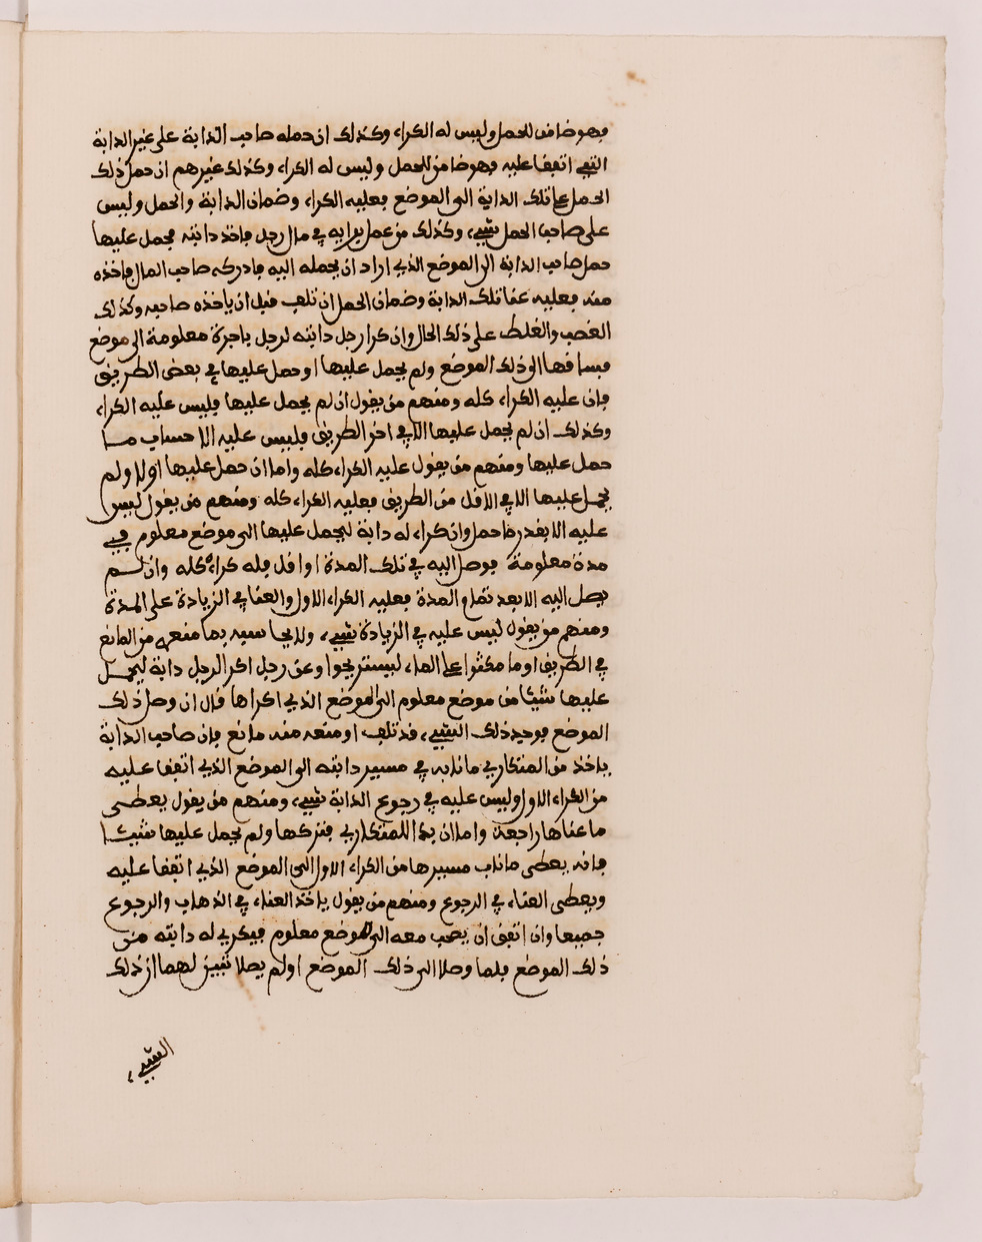 فهو ضامن للحمل وليس له الكراء وكذلك ان حمله صاحب الدابة على غير الدابة
التي اتفقا عليه فهو ضامن للحمل وليس له الكراء وكذلك غيرهم ان حمل ذلك
الحمل على تلك الدابة الى الموضع فعليه الكراء وضمان الدابة والحمل وليس
على صاحب الحمل شيء وكذلك من عمل برايه في مال رجل فاخذ دابته فحمل عليها
حمل صاحب الدابة الى الموضع الذي اراد ان يحمله اليه فادركه صاحب المال فاخذه
منه فعليه عنا تلك الدابة وضمان الحمل ان تلف قبل ان ياخذه صاحبه وكذلك
الغصب والغلط على ذلك الحال وان كرا رجل دابته لرجل باجرة معلومة الى موضع
فساقها الى ذلك الموضع ولم يحمل عليها او حمل عليها في بعض الطريق
فان عليه الكراء كله ومنهم من يقول ان لم يحمل عليها فليس عليه الكراء
وكذلك ان لم يحمل عليها الا في اخر الطريق فليس عليه الا حساب ما
حمل عليها ومنهم من يقول عليه الكراء كله واما ان حمل عليها اولا ولم
يحمل عليها الا في الاقل من الطريق فعليه الكراء كله ومنهم من يقول ليس
عليه الا بقدر ما حمل وان كراء له دابة ليحمل عليها الى موضع معلوم في
مدة معلومة فوصل اليه في تلك المدة او اقل فله كراءه كله وان لم
يصل اليه الا بعد تمام المدة فعليه الكراء الاول والعنا في الزيادة على المدة
ومنهم من يقول ليس عليه في الزيادة شيء ولا يحاسبه بما منعهم من المانع
في الطريق او ما مكثوا على الماء ليستريحوا وعن رجل اكرا لرجل دابة ليحمل
عليها شيئا من موضع معلوم الى الموضع الذي اكراها قال ان وصل ذلك
الموضع فوجد ذلك الشيء قد تلف او منعه منه مانع فان صاحب الدابة
ياخذ من المتكاري ما نابه في مسير دابته الى الموضع الذي اتفقا عليه
من الكراء الاول وليس عليه في رجوع الدابة شيء ومنهم من يقول يعطى
ما عناها راجعة واما ان بدا للمتكاري فتركها ولم يحمل عليها شيئا
فانه يعطى ما ناب مسيرها من الكراء الاول الى الموضع الذي اتفقا عليه
ويعطى العناء في الرجوع ومنهم من يقول ياخذ العناء في الذهاب والرجوع
جميعا وان اتفق ان يصحب معه الى الموضع معلوم فيكري له دابته من
ذلك الموضع فلما وصلا الى ذلك الموضع او لم يصلا تبين لهما ان ذلك
الشيء